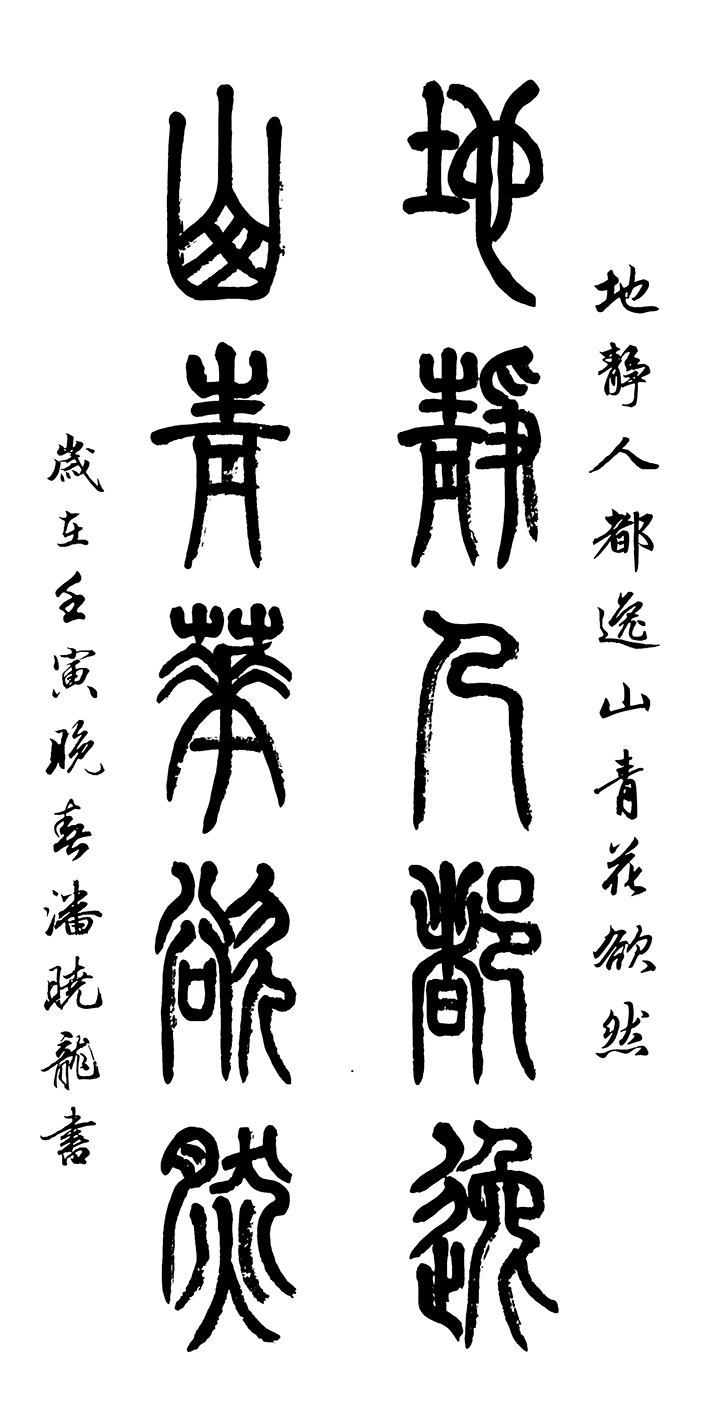 地靜人都逸山青花欲然
地靜人都逸
山青華欲然
歲在壬寅晚春潘曉龍書